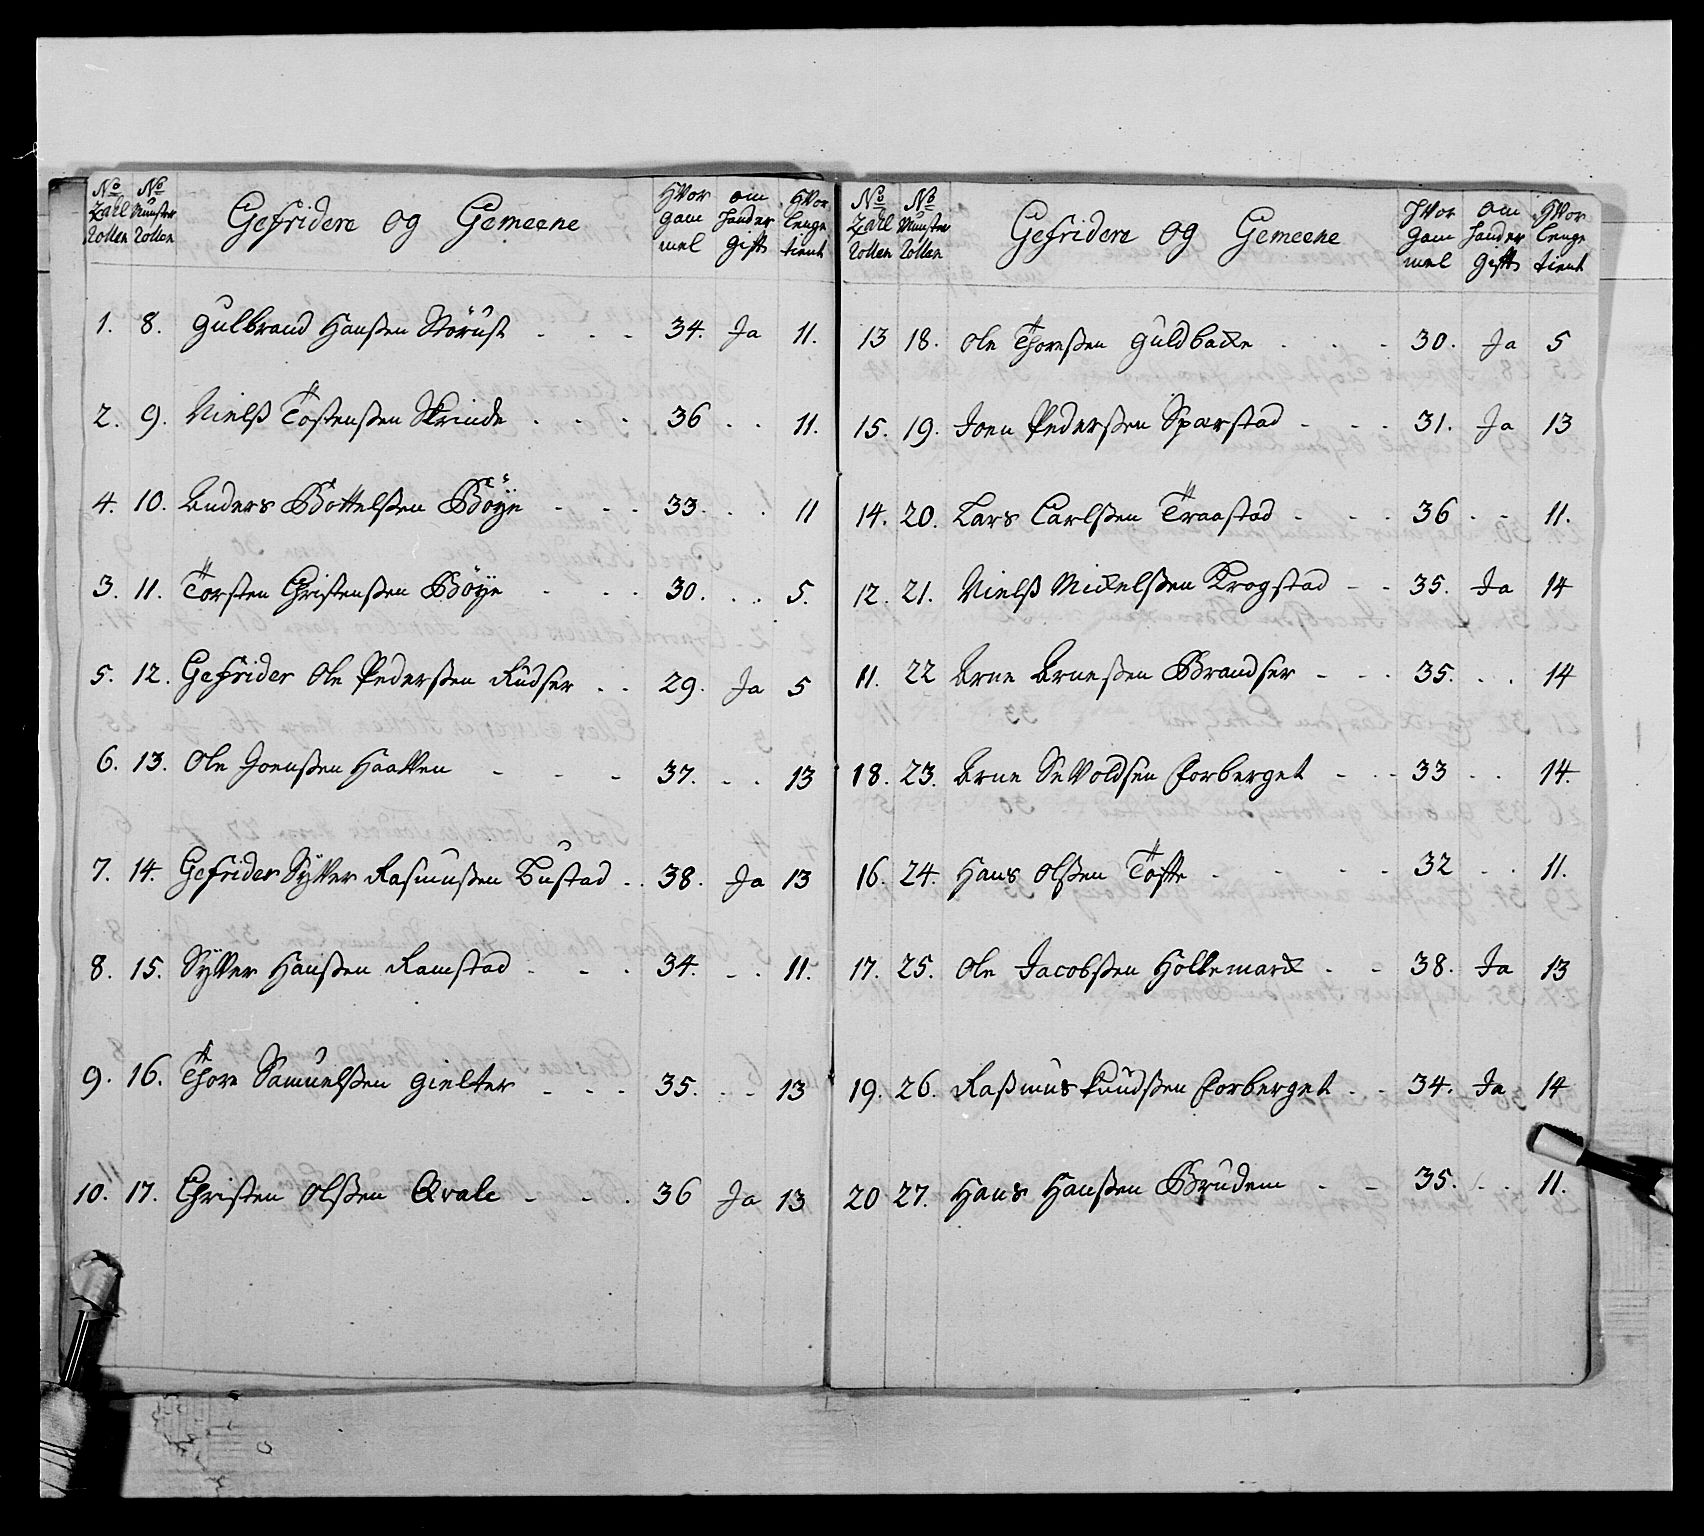 No Zahl Rollen | No Munster Rollen | Gefridere og Gemeene | Hvor gam mel | om hand er gift | Hvor lenge tient
1. 8. Gulbrand Hanßen - - - 34. Ja 11.
2. 9. Nielß Tostenßen Skrinde - - - 36 - - 11.
4. 10. Anders Bottelßen Böÿe - - - 33. - - 11
3. 11. Torsten Christenßen Böÿe - - - 30. - - 5.
5. 12. Gefrider Ole Pederßen Rudser - - 29. Ja 5
6. 13. Ole Joenßen Haatten - - - 37. - - 13
7. 14. Gefrider Sÿver Rasmußen Bustad - - 38. Ja 13
8. 15. Sÿver Hanßen Ramstad - - - 34. - - 11.
9. 16. Thore Samuelßen Gielter - - - 35. - - 13
10. 17. Christen Olßen Qvale - - - 36 Ja 13
No Zahl Rollen | No Munster Rollen | Gefridere og Gemeene | Hvor gam mel | om hand er gift | Hvor lenge tient
13 18. Ole Thoreßen Guldbacke - - - 30. Ja 5
15. 19. Joen Pederßen Sparstad - - - 31. Ja 13
14. 20. Lars Carlßen Traastad - - - 36 - - 11.
12. 21. Nielß Mickelßen Krogstad - - 35. Ja 14
11. 22 Arne Arneßen Brandser - - - 35. - - 14
18. 23. Arne Sevoldsen Forberget - - - 33 - - 14.
16. 24. Hans Olßen Tofte - - - - 32 - - 11.
17. 25. Ole Jacobßen Hollemarck - - 38. Ja 13
19. 26. Raßmus Knudßen Forberget - - 34. Ja 14
20 27. Hans Hanßen Brudem - - 35. - - 11.